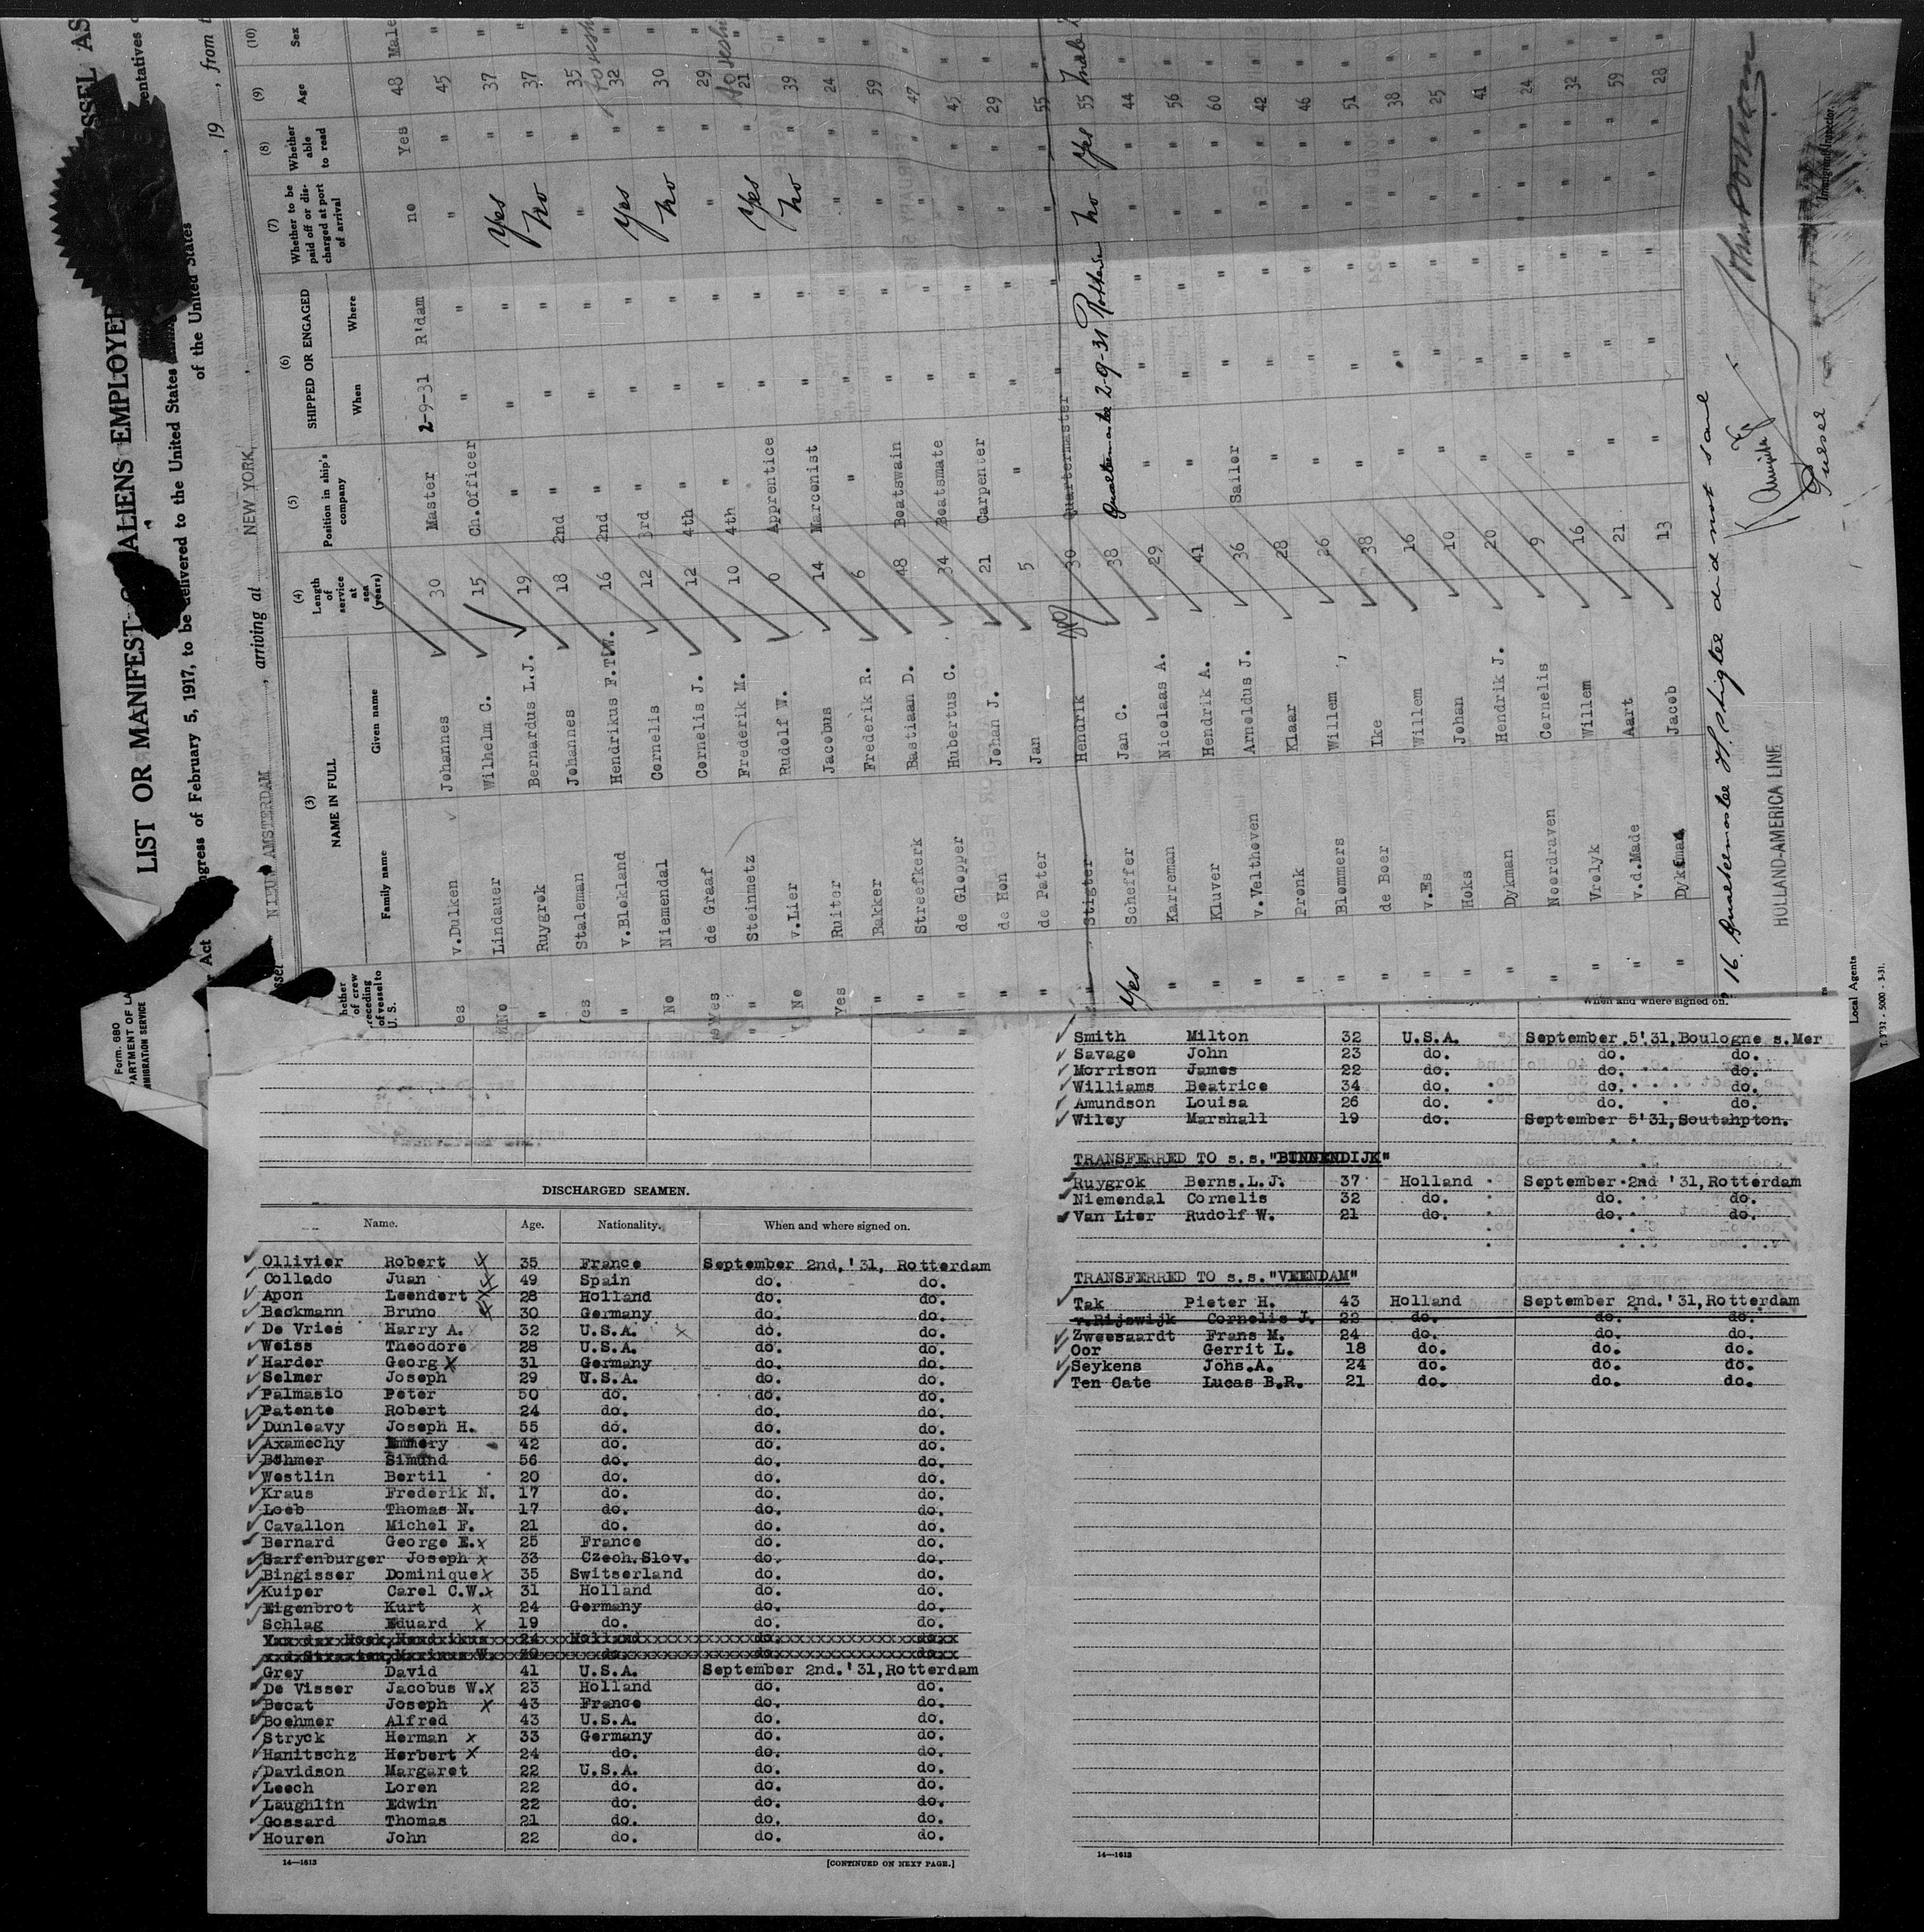 Form 680
LIST OR MANIFEST ALIENS EMPLOYE SSEL AS
ngress of February 5, 1917, to be delivered to the United States entatives
of the United States
NIEUW AMSTERDAM, arriving at NEW YORK, , 19 , from t
(3) (4) (5) (6) (7) (8) (9) (10)
NAME IN FULL Length of service at sea (years) Position in ship's company SHIPPED OR ENGAGED Whether to be paid off or discharged at port of arrival Whether able to read Age Sex
Family name Given name When Where
v.Dulken Johannes 30 Master 2-9-31 R'dam no Yes 48 Male
Lindauer Wilhelm C. 15 Ch.Officer " " " " 45 "
No Ruygrok Bernardus L.J. 19 " " " Yes " 37 "
" Staleman Johannes 18 2nd " " No " 37 "
Yes v.Blokland Hendrikus F.T.W. 16 2nd " " " " 35 "
" Niemendal Cornelis 12 3rd " " Yes " 32 "
No de Graaf Cornelis J. 12 4th " " No " 30 "
Yes Steinmetz Frederik M. 10 4th " " " " 29 "
" v.Lier Rudolf W. 0 Apprentice " " Yes " 21 "
No Ruiter Jacobus 14 Marconist " " No " 39 "
Yes Bakker Frederik R. 6 " " " " " 24 "
" Streefkerk Bastiaan D. 48 Boatswain " " " " 59 "
" de Glopper Hubertus C. 34 Boatsmate " " " " 47 "
" de Hon Johan J. 21 Carpenter " " " " 45 "
" de Pater Jan 5 " " " " " 29 "
" Stigter Hendrik 30 Quartermaster " " " " 55
Yes Scheffer Jan C. 38 Quartermaster 2-9-31 Rotterdam No Yes 55 Male
" Karreman Nicolaas A. 29 " " " " " 44 "
" Kluver Hendrik A. 41 " " " " " 56 "
" v.Velthoven Arnoldus J. 36 Sailor " " " " 60 "
" Pronk Klaar 28 " " " " " 42 "
" Blommers Willem 26 " " " " " 46 "
" de Boer Ike 38 " " " " " 51 "
" v.Es Willem 16 " " " " " 38 "
" Hoks Johan 10 " " " " " 25 "
" Dykman Hendrik J. 20 " " " " " 41 "
" Noordraven Cornelis 9 " " " " " 24 "
" Vrolyk Willem 16 " " " " " 32 "
" v.d.Made Aart 21 " " " " " 59 "
" Dykman Jacob 13 " " " " " 28 "
16. Quartermaster H. Stigter did not sail
HOLLAND-AMERICA LINE
Purser
Immigrant Inspector.
Local Agents
DISCHARGED SEAMEN.
Name. Age. Nationality. When and where signed on.
Ollivier Robert 35 France September 2nd,'31, Rotterdam
Collado Juan 49 Spain do. do.
Apon Leendert 28 Holland do. do.
Beckmann Bruno 30 Germany do. do.
De Vries Harry A. 32 U.S.A. do. do.
Weiss Theodore 28 U.S.A. do. do.
Harder Georg X 31 Germany do. do.
Selmer Joseph 29 U.S.A. do. do.
Palmasio Peter 50 do. do. do.
Patente Robert 24 do. do. do.
Dunleavy Joseph H. 55 do. do. do.
Axamechy Emmery 42 do. do. do.
Böhmer Simund 56 do. do. do.
Westlin Bertil 20 do. do. do.
Kraus Frederik N. 17 do. do. do.
Loeb Thomas N. 17 do. do. do.
Cavallon Michel F. 21 do. do. do.
Bernard George E. x 25 France do. do.
Sarfenburger Joseph x 33 Czech.Slov. do. do.
Bingisser Dominique x 35 Switserland do. do.
Kuiper Carel C.W. x 31 Holland do. do.
Eigenbrot Kurt x 24 Germany do. do.
Schlag Eduard x 19 do. do. do.
Grey David 41 U.S.A. September 2nd.'31,Rotterdam
De Visser Jacobus W. x 23 Holland do. do.
Becat Joseph x 43 France do. do.
Boehmer Alfred 43 U.S.A. do. do.
Stryck Herman x 33 Germany do. do.
Hanitschz Herbert x 24 do. do. do.
Davidson Margaret 22 U.S.A. do. do.
Leech Loren 22 do. do. do.
Laughlin Edwin 22 do. do. do.
Gossard Thomas 21 do. do. do.
Houren John 22 do. do. do.
14—1613 [CONTINUED ON NEXT PAGE.]
When and where signed on.
Smith Milton 32 U.S.A. September 5'31,Boulogne s.Mer
Savage John 23 do. do. do.
Morrison James 22 do. do. do.
Williams Beatrice 34 do. do. do.
Amundson Louisa 26 do. do. do.
Wiley Marshall 19 do. September 5'31,Soutahpton.
TRANSFERRED TO s.s."BINNENDIJK"
Ruygrok Berns.L.J. 37 Holland September 2nd '31,Rotterdam
Niemendal Cornelis 32 do. do. do.
Van Lier Rudolf W. 21 do. do. do.
TRANSFERRED TO s.s."VEENDAM"
Tak Pieter H. 43 Holland September 2nd.'31,Rotterdam
v.Rijswijk Cornelis J. 22 do. do. do.
Zweesaardt Frans M. 24 do. do. do.
Oor Gerrit L. 18 do. do. do.
Seykens Johs.A. 24 do. do. do.
Ten Cate Lucas B.R. 21 do. do. do.
14—1613